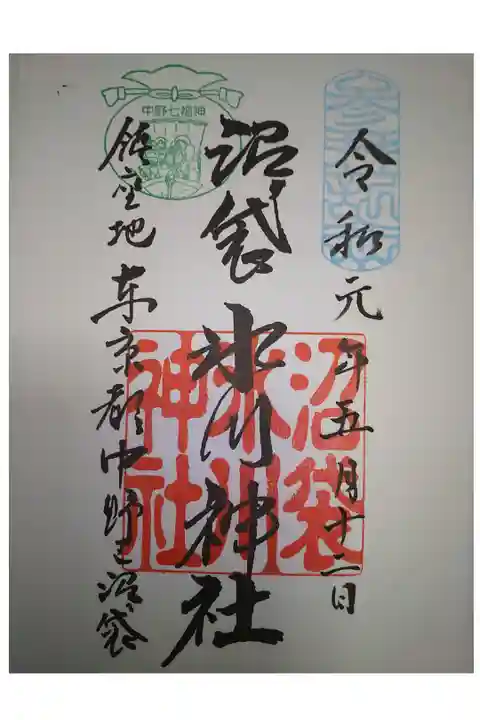 令和元年五月十二日
沼袋氷川神社
鎮座地 東京都中野区沼袋
中野七福神
沼袋
氷川
神社